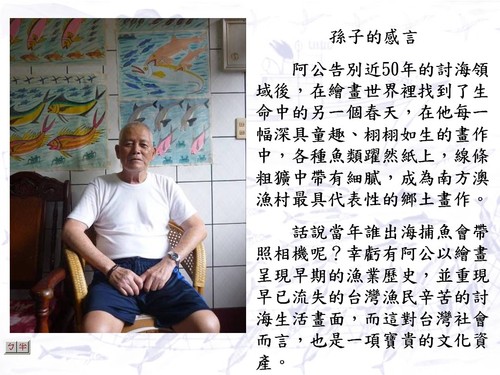 孫子的感言
阿公告別近50年的討海領
域後，在繪畫世界裡找到了生
命中的另一個春天，在他每一
幅深具童趣、栩栩如生的畫作
中，各種魚類躍然紙上，線條
粗獷中帶有細膩，成為南方澳
漁村最具代表性的鄉土畫作。
話說當年誰出海捕魚會帶
照相機呢？幸虧有阿公以繪畫
呈現早期的漁業歷史，並重現
早已流失的台灣漁民辛苦的討
海生活畫面，而這對台灣社會
而言，也是一項寶貴的文化資
產。
ㄅ半